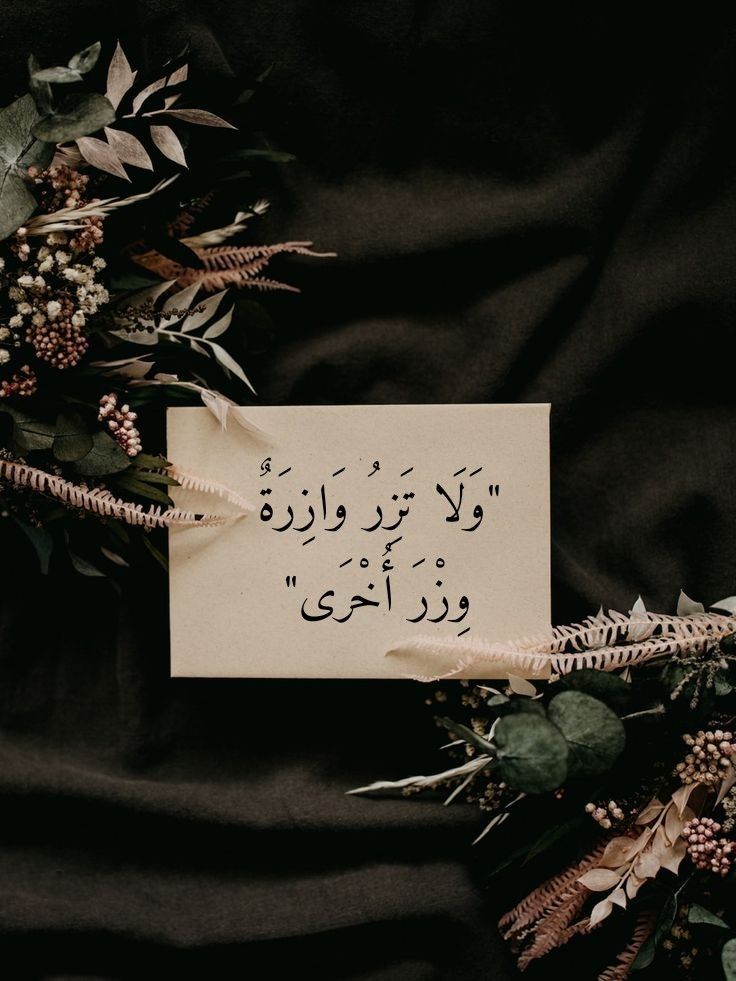 "وَلَا تَزِرُ وَازِرَةٌ
وِزْرَ أُخْرَى"